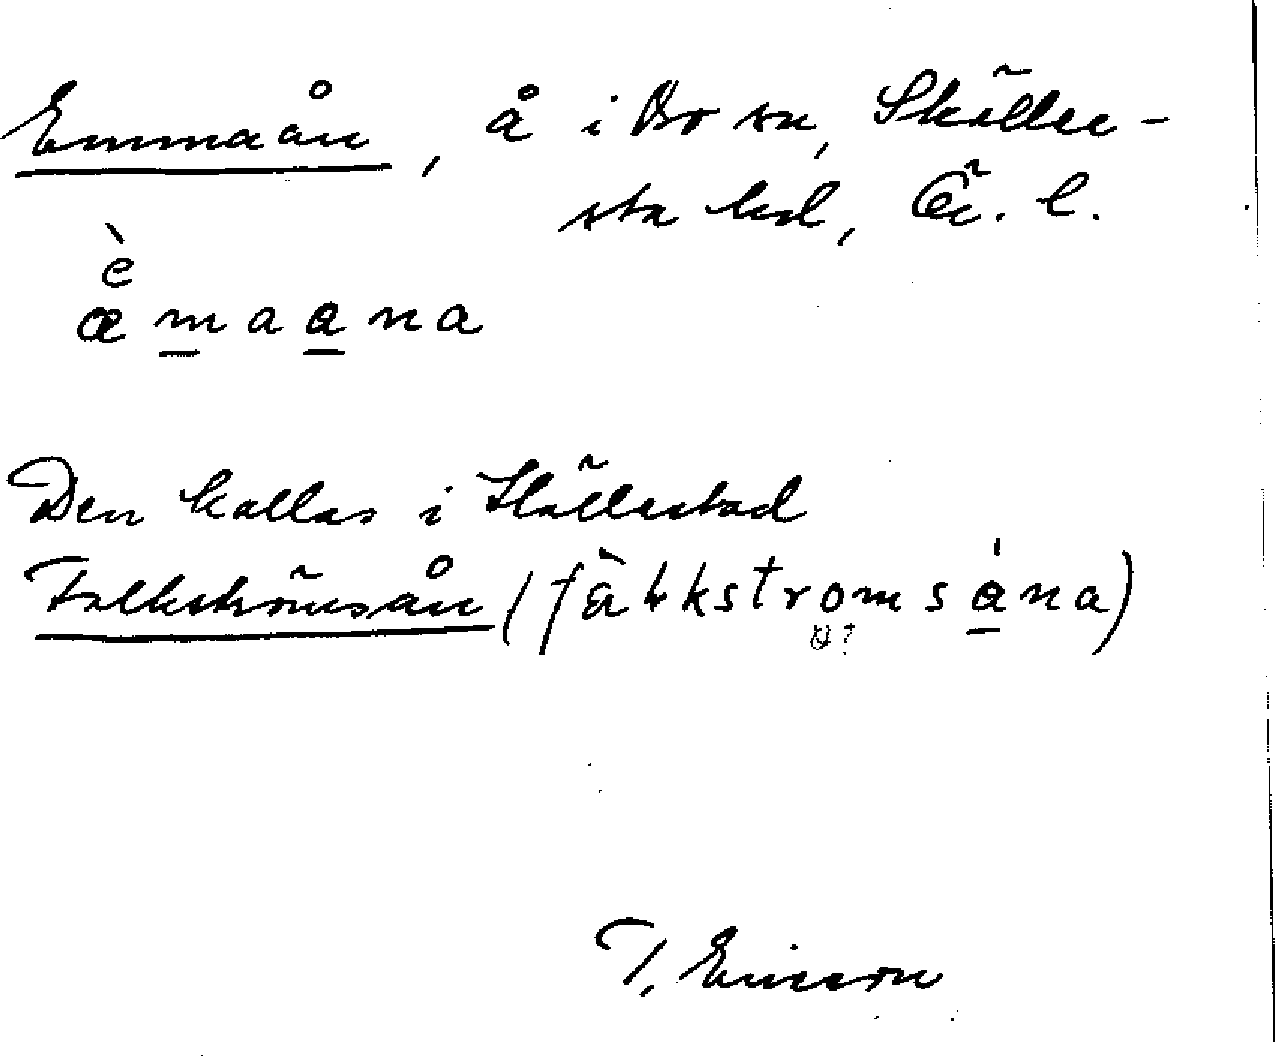 Emmaån, å i Bo sn, Sköller-
sta hd, Ör. l.
è
æmaana
Den kallas i Hällestad
Falkströmsån (fàłkstromsa̍na)
ö?
T. Ericson